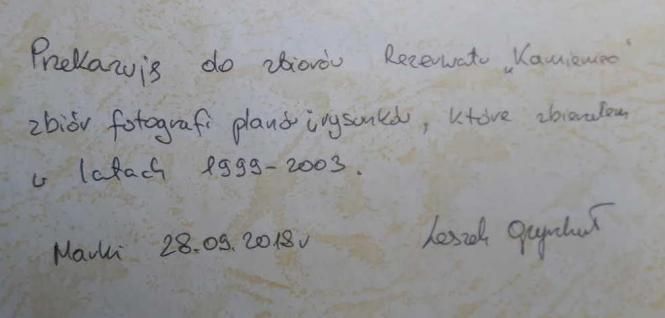 Przekazuję do zbiorów Rezerwatu „Kamienna"
zbiór fotografi planów i rysunków, które zbierałem
w latach 1999-2003.
Marki 28.09.2018r
Leszek